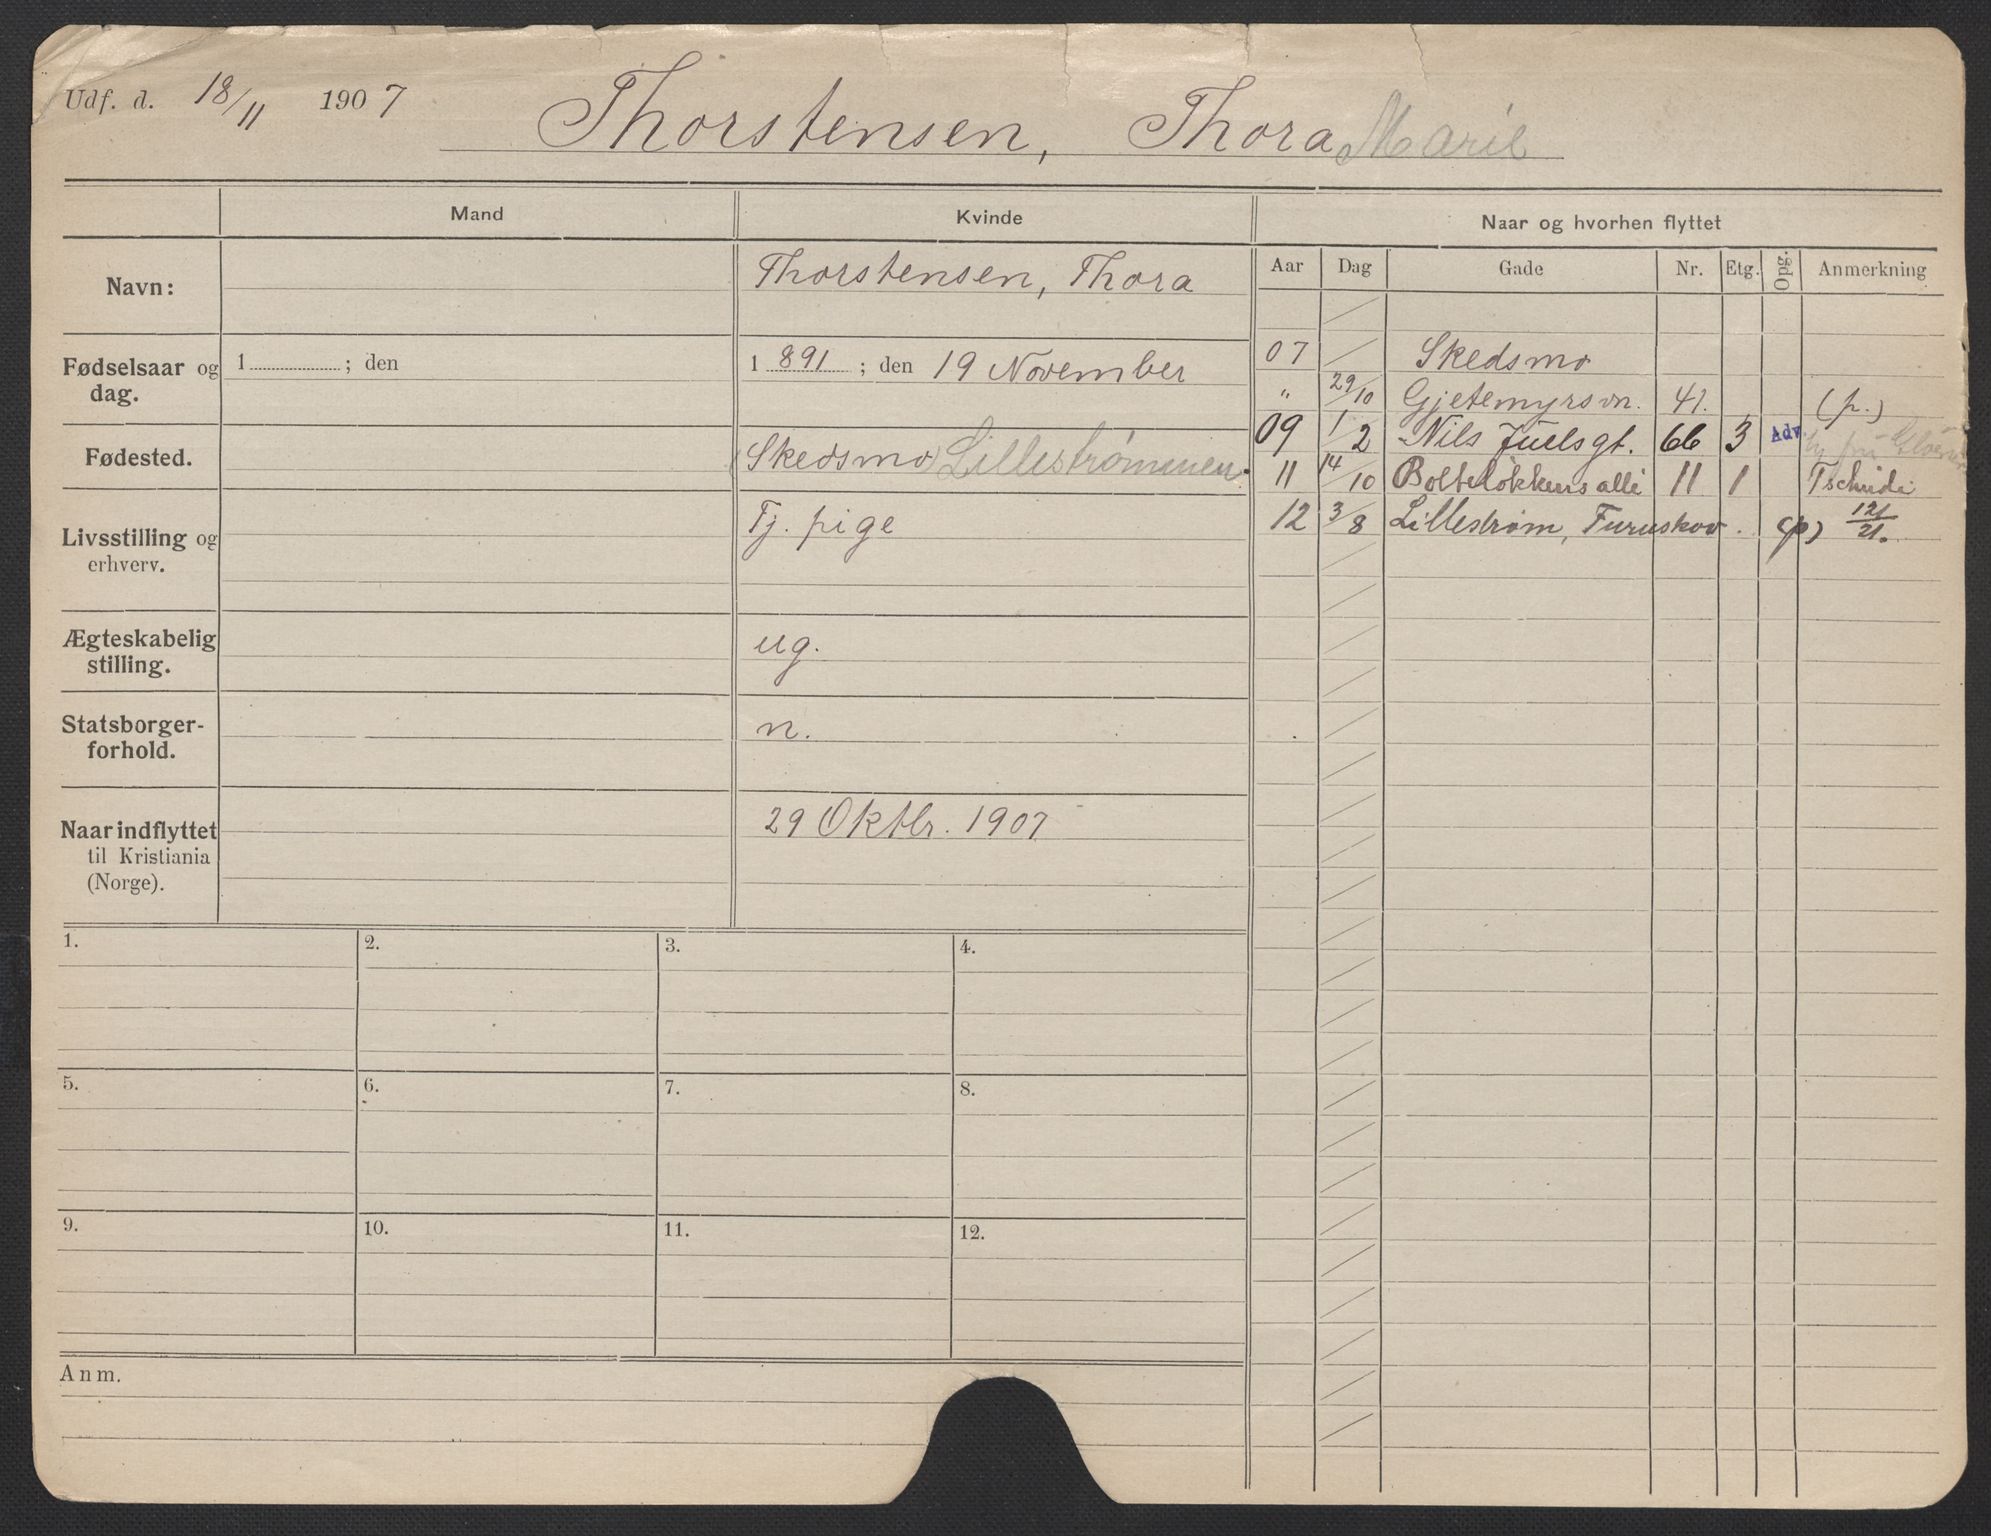 Udf. d. 18/11 1907 Thorstensen, Thora Marie
Mand Kvinde Naar og hvorhen flyttet
Aar Dag Gade Nr. Etg. Opg. Anmerkning
Navn: Thorstensen, Thora
Fødselsaar og dag. 1 ; den 1 891 ; den 19 November
Fødested. (Skedsmo) Lillestrømmen.
Livsstilling og erhverv. Tj. pige
Ægteskabelig stilling. ug.
Statsborgerforhold. n.
Naar indflyttet til Kristiania (Norge). 29 Oktbr. 1907
07 Skedsmo
" 29/10 Gjetemyrsvn. 41. (p.)
09 1/2 Nils Juelsgt. 66 3 Adv.
11 14/10 Bolteløkkens alle 11 1 Tschudi
12 3/8 Lillestrøm, Furuskov. (p) 121/21.
1. 2. 3. 4.
5. 6. 7. 8.
9. 10. 11. 12.
Anm.